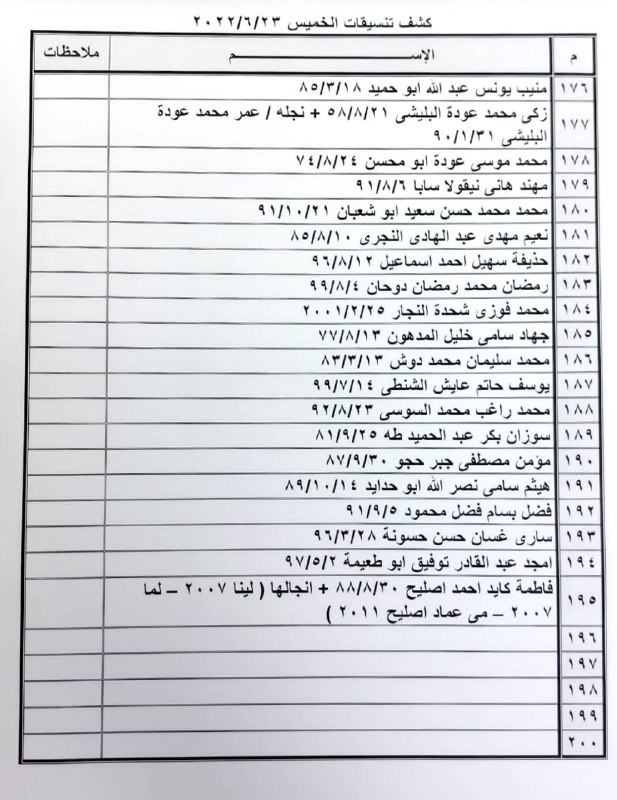 كشف تنسيقات الخميس ٢٠٢٢/٦/٢٣
م الإســـــم ملاحظات
١٧٦ منيب يونس عبد الله ابو حميد ٨٥/٣/١٨
١٧٧ زكى محمد عودة البليشى ٥٨/٨/٢١ + نجله / عمر محمد عودة
البليشى ٩٠/١/٣١
١٧٨ محمد موسى عودة ابو محسن ٧٤/٨/٢٤
١٧٩ مهند هانى نيقولا سابا ٩١/٨/٦
١٨٠ محمد محمد حسن سعيد ابو شعبان ٩١/١٠/٢١
١٨١ نعيم مهدى عبد الهادى النجرى ٨٥/٨/١٠
١٨٢ حذيفة سهيل احمد اسماعيل ٩٦/٨/١٢
١٨٣ رمضان محمد رمضان دوحان ٩٩/٨/٤
١٨٤ محمد فوزى شحدة النجار ٢٠٠١/٢/٢٥
١٨٥ جهاد سامى خليل المدهون ٧٧/٨/١٣
١٨٦ محمد سليمان محمد دوش ٨٣/٣/١٣
١٨٧ يوسف حاتم عايش الشنطى ٩٩/٧/١٤
١٨٨ محمد راغب محمد السوسى ٩٢/٨/٢٣
١٨٩ سوزان بكر عبد الحميد طه ٨١/٩/٢٥
١٩٠ مؤمن مصطفى جبر حجو ٨٧/٩/٣٠
١٩١ هيثم سامى نصر الله ابو حدايد ٨٩/١٠/١٤
١٩٢ فضل بسام فضل محمود ٩١/٩/٥
١٩٣ سارى غسان حسن حسونة ٩٦/٣/٢٨
١٩٤ امجد عبد القادر توفيق ابو طعيمة ٩٧/٥/٢
١٩٥ فاطمة كايد احمد اصليح ٨٨/٨/٣٠ + انجالها ( لينا ٢٠٠٧ – لما
٢٠٠٧ – مى عماد اصليح ٢٠١١ )
١٩٦
١٩٧
١٩٨
١٩٩
٢٠٠